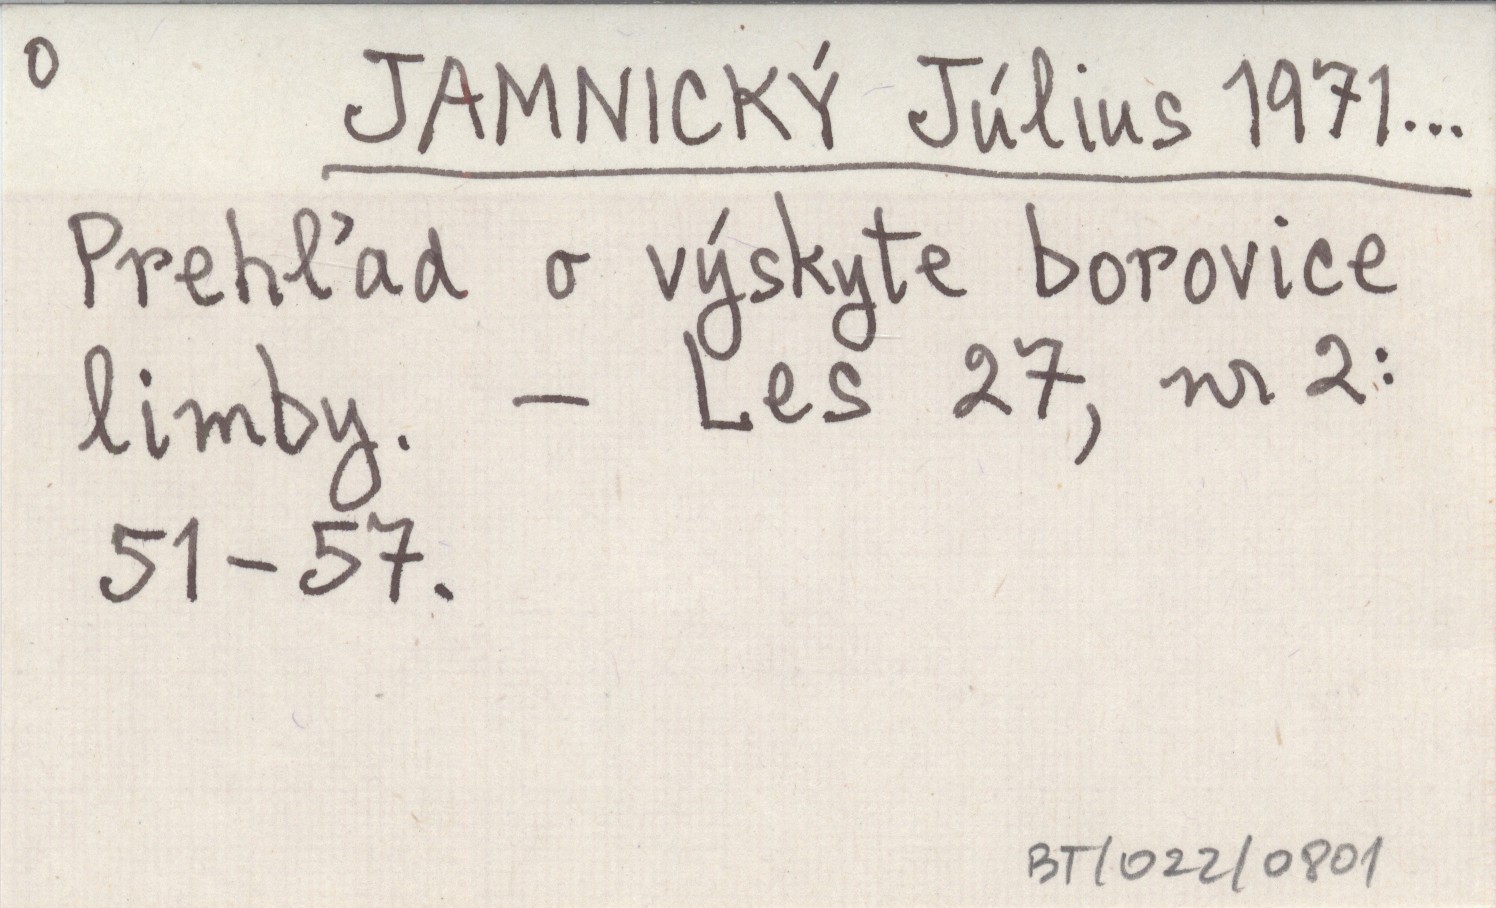 0
JAMNICKÝ Július 1971...
Prehľad o výskyte borovice
limby. - Les 27, nr 2:
51-57.
BT/022/0801